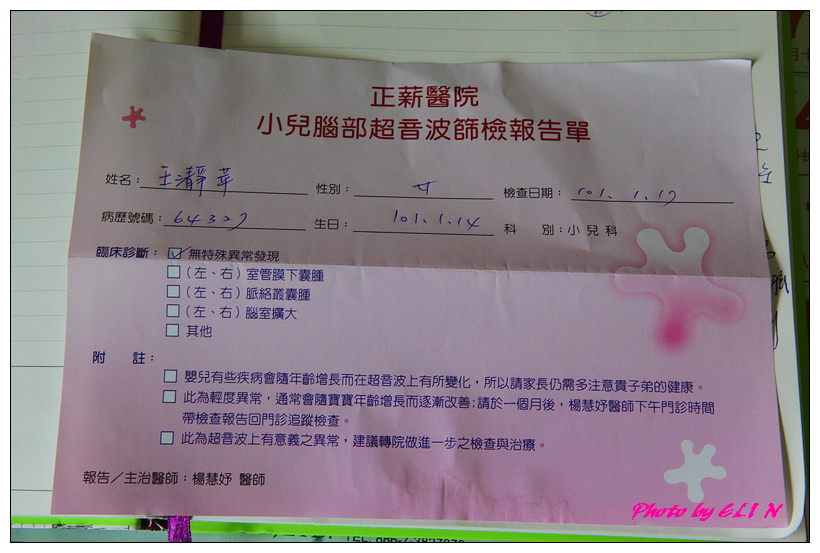 正薪醫院
小兒腦部超音波篩檢報告單
姓名： 王瀞苹 性別： 女 檢查日期： 101、1、17
病歷號碼： 64327 生日： 101、1、14 科 別：小兒科
臨床診斷： ☑ 無特殊異常發現
□（左、右）室管膜下囊腫
□（左、右）脈絡叢囊腫
□（左、右）腦室擴大
□ 其他
附 註：
□ 嬰兒有些疾病會隨年齡增長而在超音波上有所變化，所以請家長仍需多注意貴子弟的健康。
□ 此為輕度異常，通常會隨寶寶年齡增長而逐漸改善;請於一個月後，楊慧妤醫師下午門診時間
帶檢查報告回門診追蹤檢查。
□ 此為超音波上有意義之異常，建議轉院做進一步之檢查與治療。
報告／主治醫師：楊慧妤 醫師
Photo by ELIN